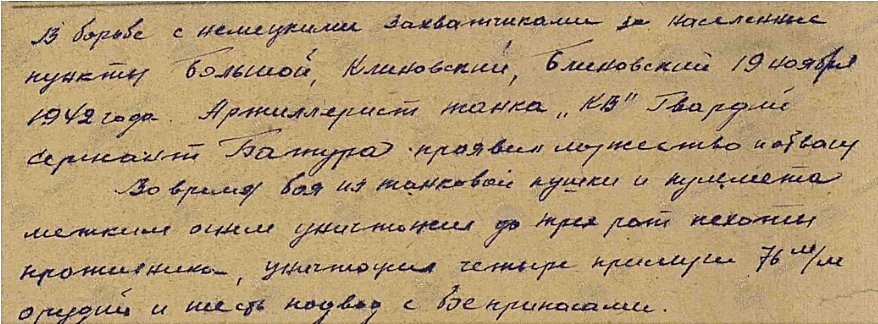 В борьбе с немецкими захватчиками за населенные
пункты Большой, Клиновский, Блиновский 19 ноября
1942 года. Артиллерист танка „КВ" Гвардии
сержант Бажура проявил мужество и отвагу
Во время боя из танковой пушки и пулемета
метким огнем уничтожил до трех рот пехоты
противника, уничтожил четыре прислуги 76 м/м
орудий и шесть подвод с боеприпасами.